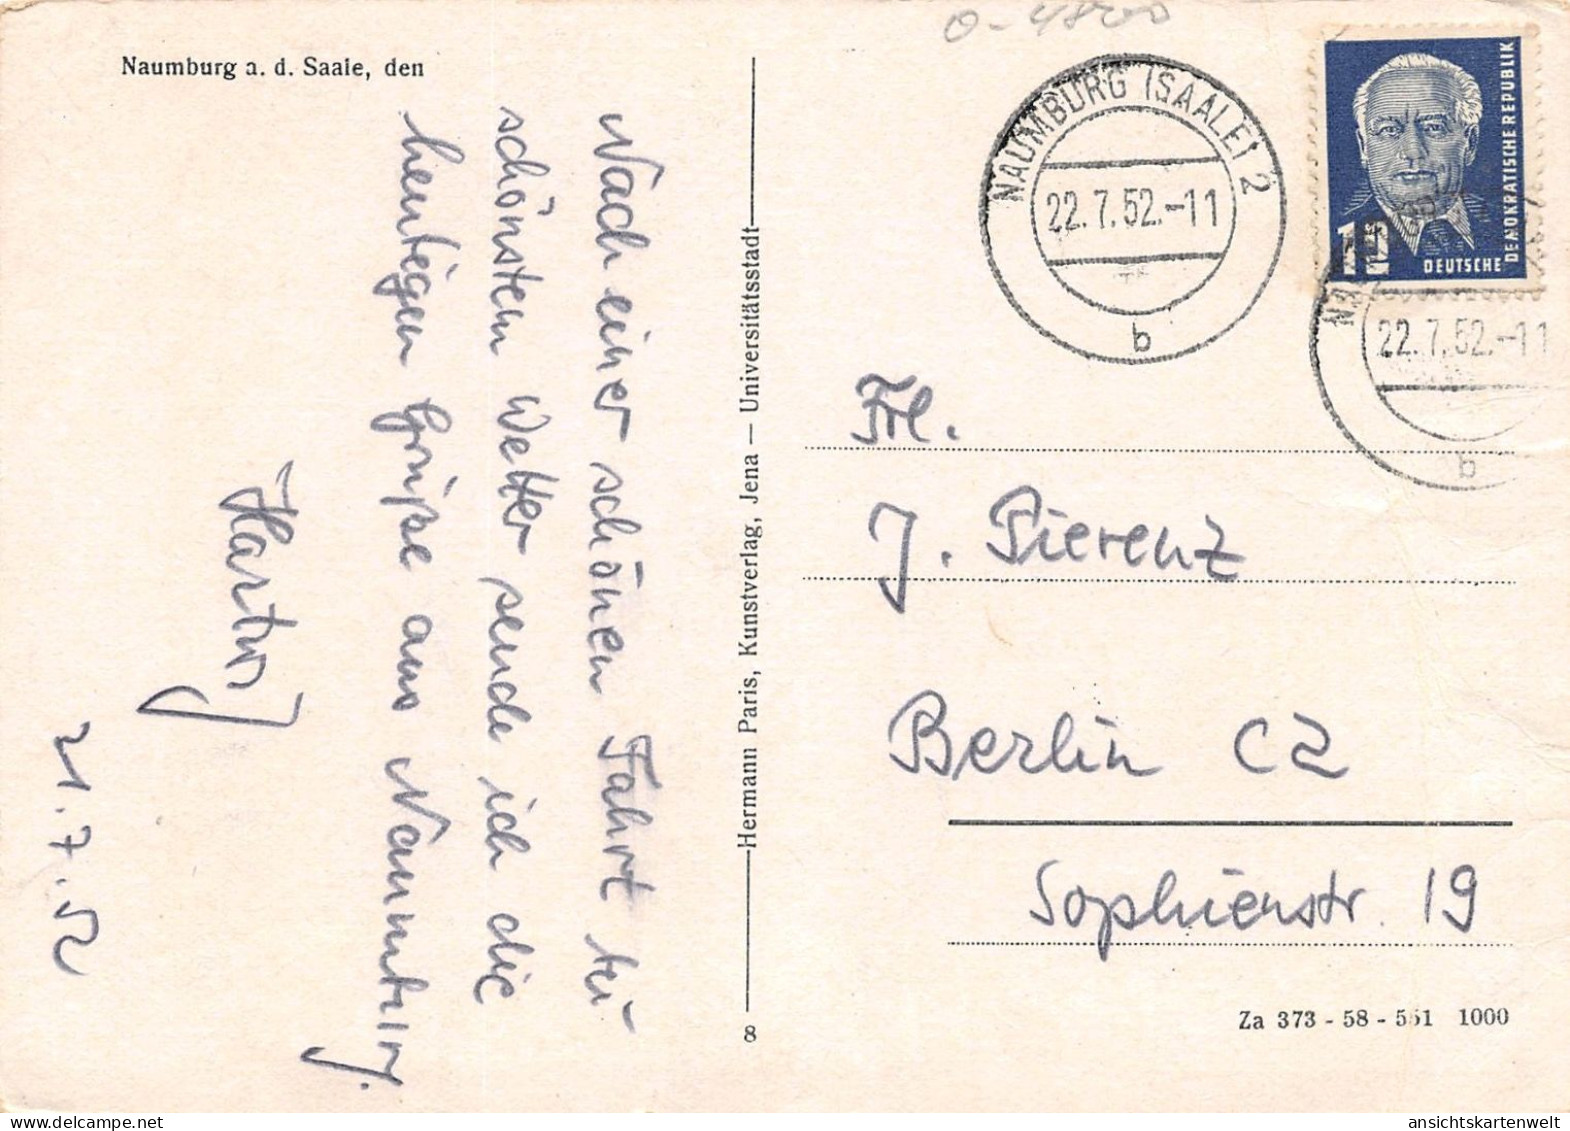 Naumburg a. d. Saale, den
Nach einer schönen Fahrt bei
schönstem Wetter sende ich die
heutigen Grüße aus Naumburg.
Hartwig
21.7.52
Hermann Paris, Kunstverlag, Jena — Universitätsstadt
8
NAUMBURG (SAALE) 2
22.7.52.-11
b
DEUTSCHE DEMOKRATISCHE REPUBLIK
12
22.7.52.-11
b
Frl.
J. Pierenz
Berlin C2
Sophienstr. 19
Za 373 - 58 - 551 1000
ansichtskartenwelt